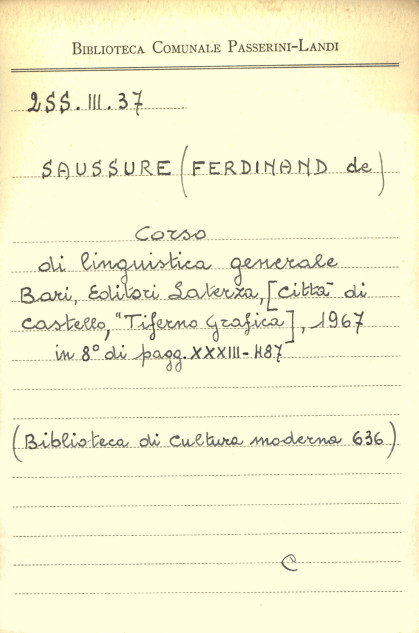 BIBLIOTECA COMUNALE PASSERINI-LANDI
2SS.III.37
SAUSSURE (FERDINAND de)
Corso
di linguistica generale
Bari, Editori Laterza, [Città di
Castello, "Tiferno Grafica], 1967
in 8° di pagg. XXXIII-487
(Biblioteca di Cultura moderna 636)
C